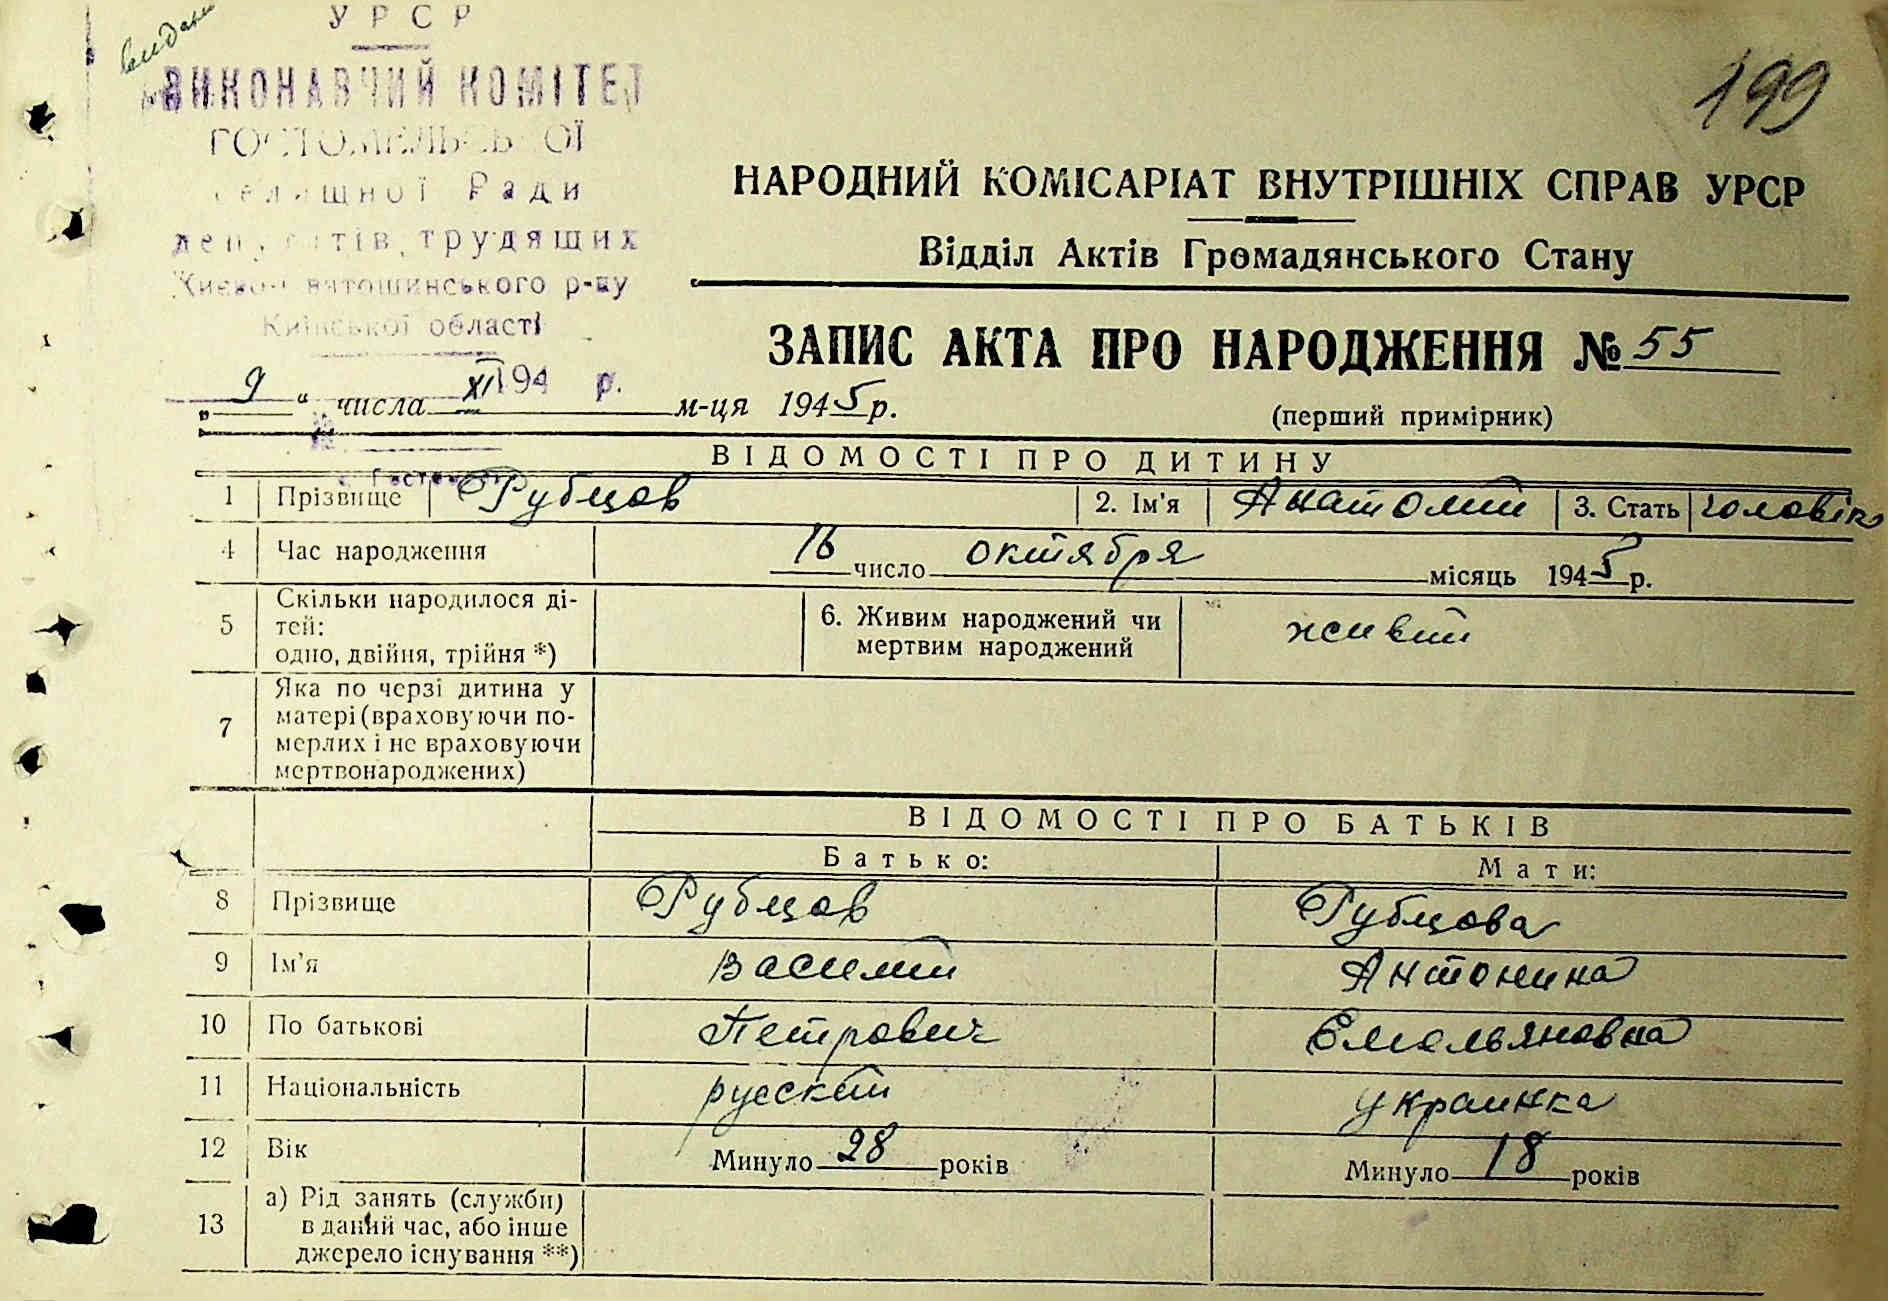 УРСР
ВИКОНАВЧИЙ КОМІТЕТ
ГОСТОМЕЛЬСЬКОЇ
селищної Ради
депутатів трудящих
Києво-Святошинського р-ну
Київської області
194 р.
199
НАРОДНИЙ КОМІСАРІАТ ВНУТРІШНІХ СПРАВ УРСР
Відділ Актів Громадянського Стану
ЗАПИС АКТА ПРО НАРОДЖЕННЯ № 55
„ 9 “ числа XI м-ця 1945 р.
(перший примірник)
ВІДОМОСТІ ПРО ДИТИНУ
1 Прізвище Рубцов 2. Ім'я Анатолий 3. Стать чоловік
4 Час народження 16 число октября місяць 1945 р.
5 Скільки народилося ді-
тей:
одно, двійня, трійня *)
6. Живим народжений чи
мертвим народжений
живий
7 Яка по черзі дитина у
матері (враховуючи по-
мерлих і не враховуючи
мертвонароджених)
ВІДОМОСТІ ПРО БАТЬКІВ
Батько: Мати:
8 Прізвище Рубцов Рубцова
9 Ім'я Василий Антонина
10 По батькові Петрович Емельяновна
11 Національність русский украинка
12 Вік Минуло 28 років Минуло 18 років
13 а) Рід занять (служби)
в даний час, або інше
джерело існування **)